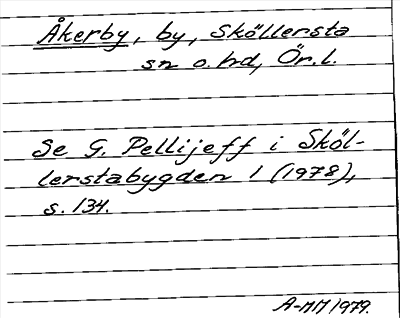 Åkerby, by, Sköllersta
sn o. hd, Ör. l.
Se G. Pellijeff i Sköl-
lerstabygden 1 (1978),
s. 134.
A-MM 1979.